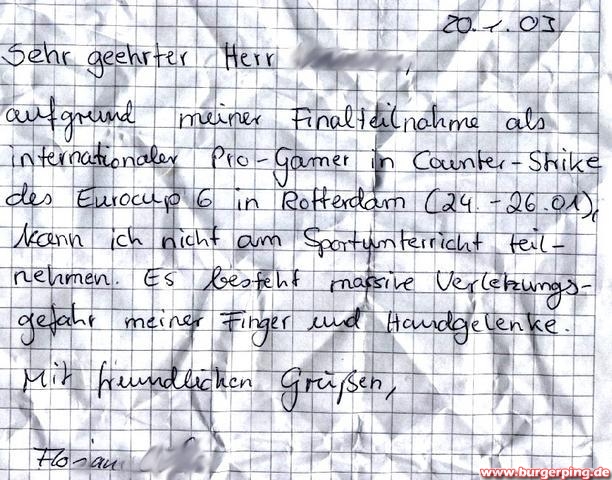 20.1.03
Sehr geehrter Herr ,
aufgrund meiner Finalteilnahme als
internationaler Pro-Gamer in Counter-Strike
des Eurocup 6 in Rotterdam (24.-26.01),
kann ich nicht am Sportunterricht teil-
nehmen. Es besteht massive Verletzungs-
gefahr meiner Finger und Handgelenke.
Mit freundlichen Grüßen,
Florian
www.burgerping.de